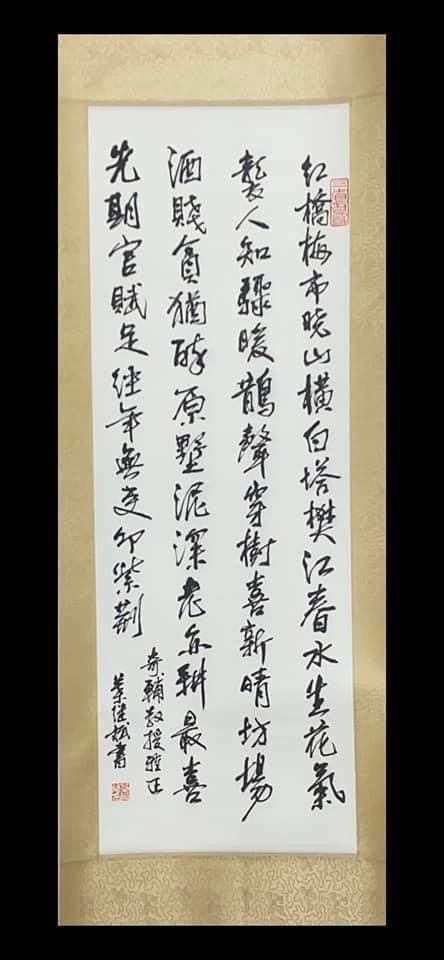 红橋梅市晓山橫白塔樊江春水生花氣
襲人知驟暖鵲聲穿樹喜新晴坊場
酒賤貧猶酔原墅泥深老亦耕最喜
先期官賦足经年無吏叩紫荆
奇輔教授雅正
葉继松書